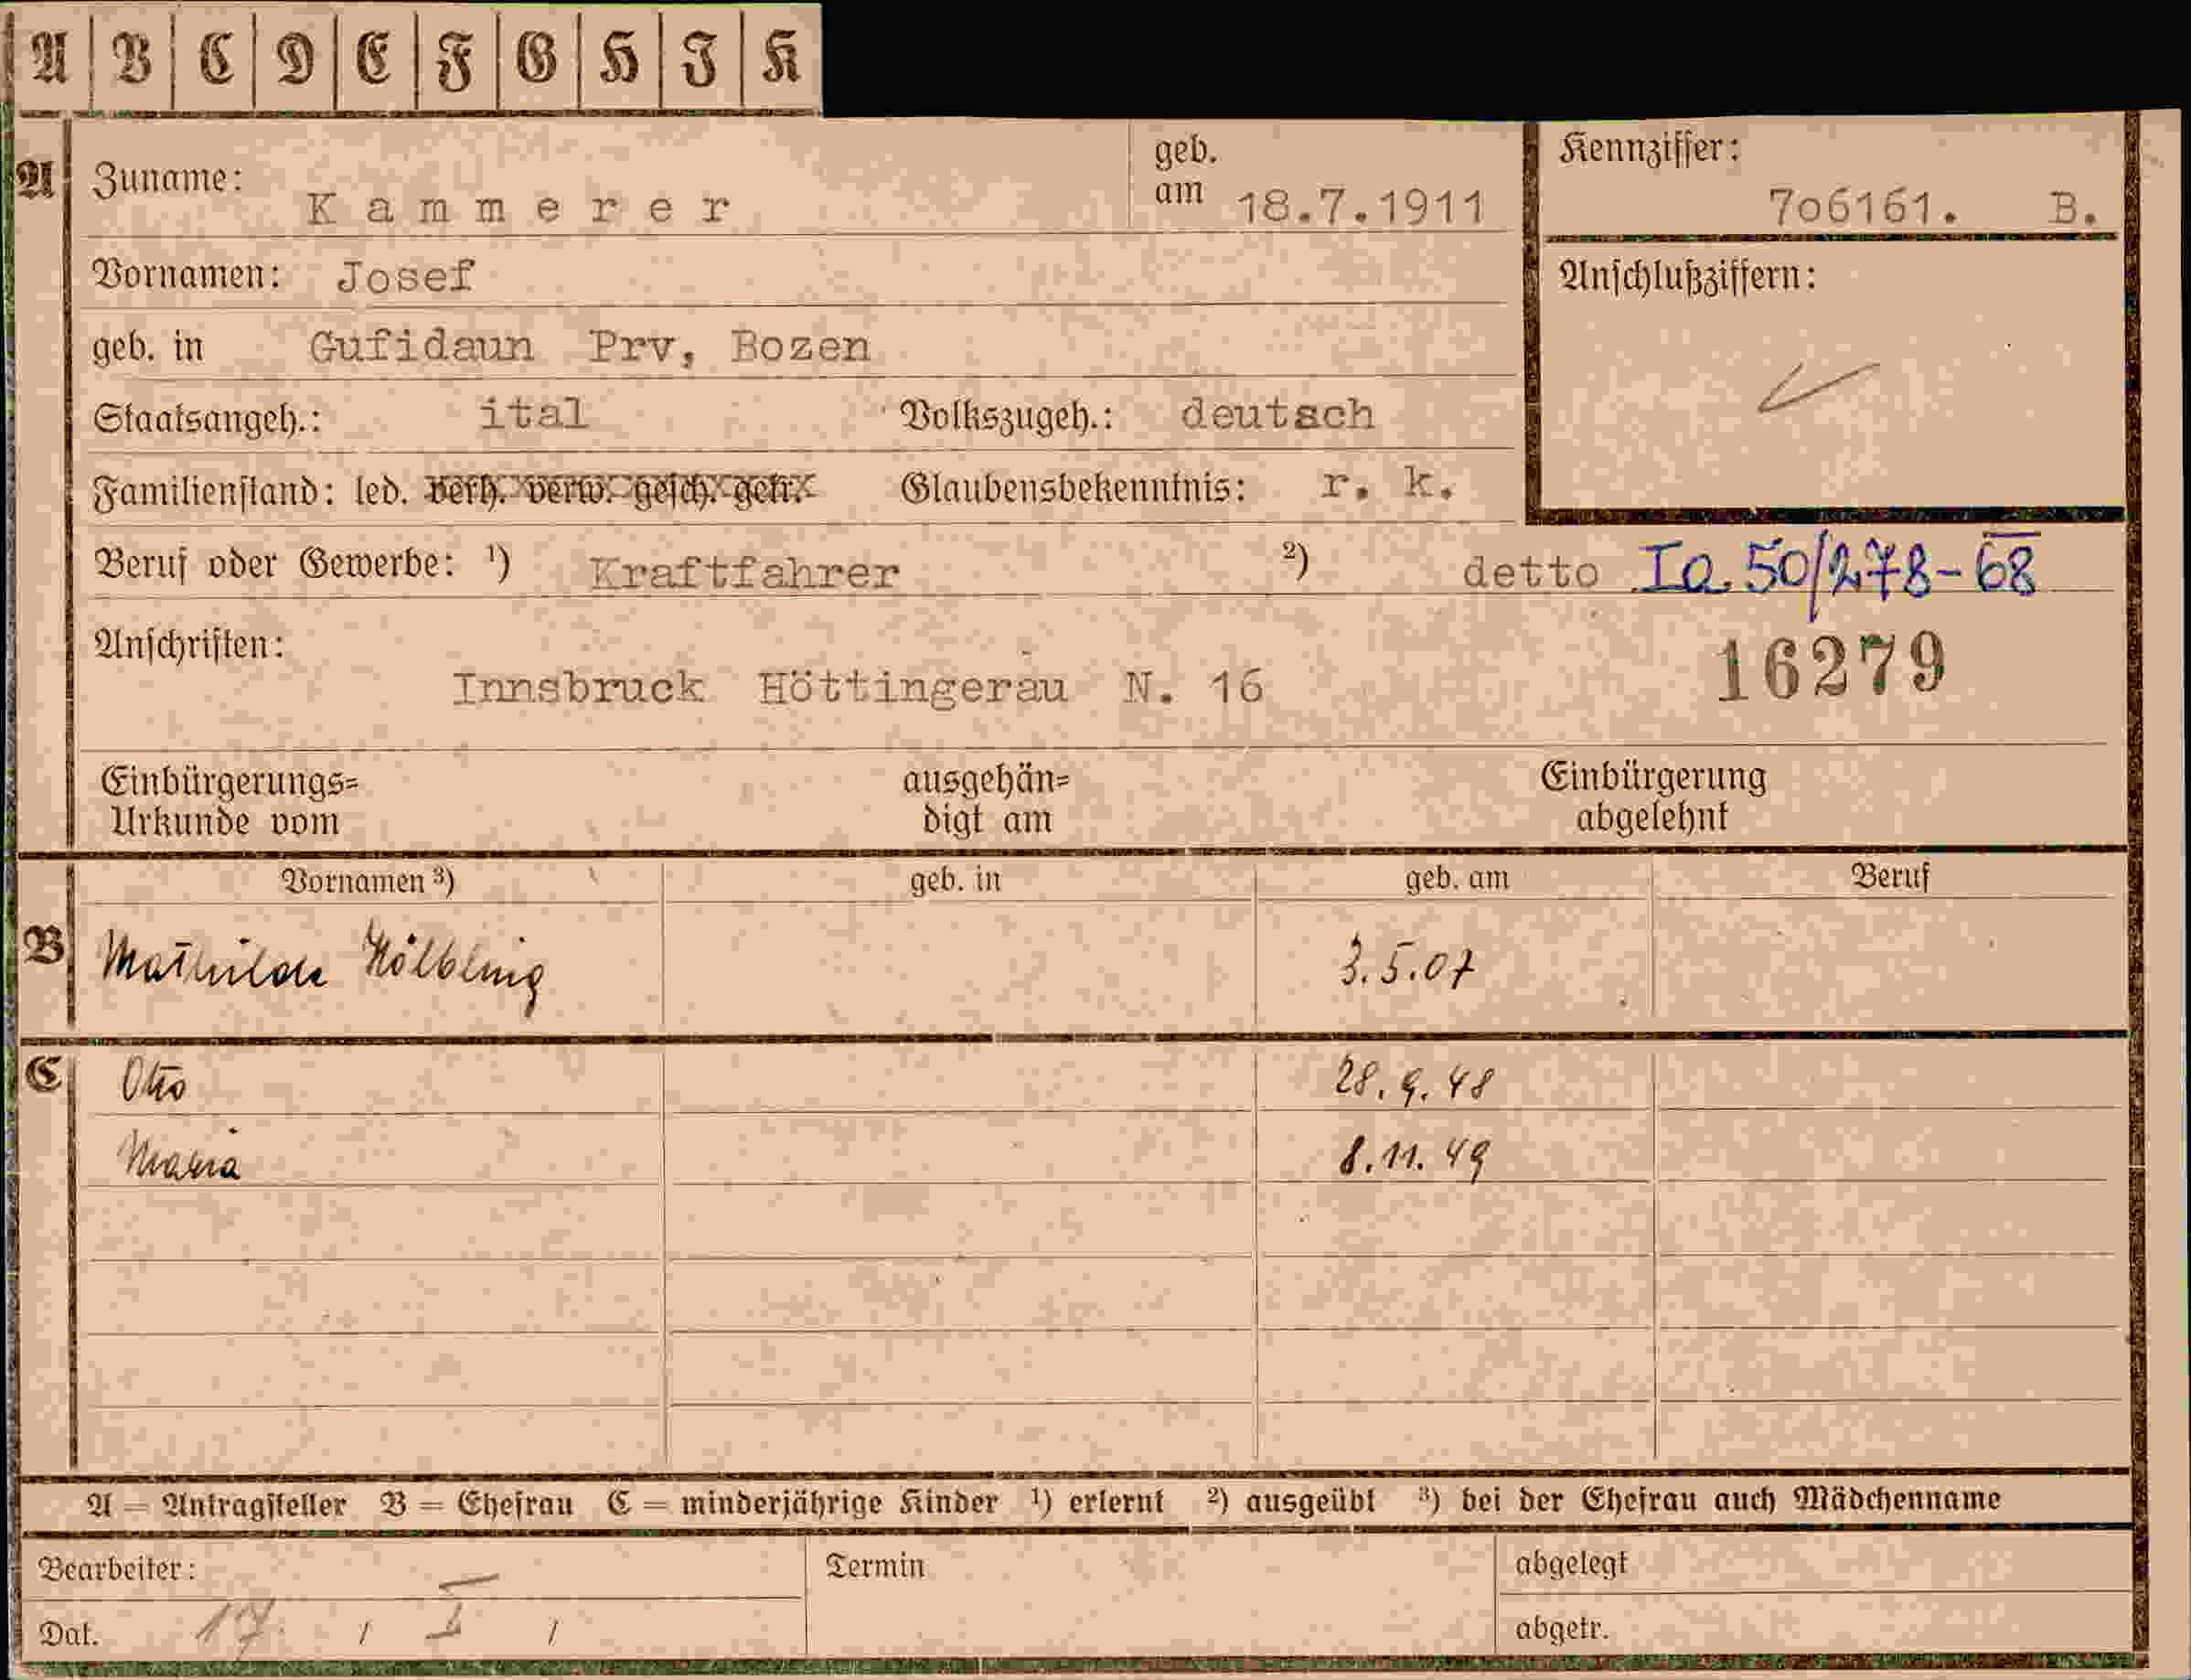 A B C D E F G H I K
A Zuname: Kammerer geb. am 18.7.1911 Kennziffer: 7o6161. B.
Vornamen: Josef Anschlußziffern:
geb. in Gufidaun Prv, Bozen
Staatsangeh.: ital Volkszugeh.: deutsch
Familienstand: led. verh. verw. gesch. getr. Glaubensbekenntnis: r. k.
Beruf oder Gewerbe: 1) Kraftfahrer 2) detto Ia 50/278-68
Anschriften: 16279
Innsbruck Höttingerau N. 16
Einbürgerungs= ausgehän= Einbürgerung
Urkunde vom digt am abgelehnt
Vornamen 3) geb. in geb. am Beruf
B Mathilde Hölbling 3.5.07
C Otto 28.9.48
Maria 8.11.49
A = Antragsteller B = Ehefrau C = minderjährige Kinder 1) erlernt 2) ausgeübt 3) bei der Ehefrau auch Mädchenname
Bearbeiter: Termin abgelegt
Dat. 17. / / abgetr.